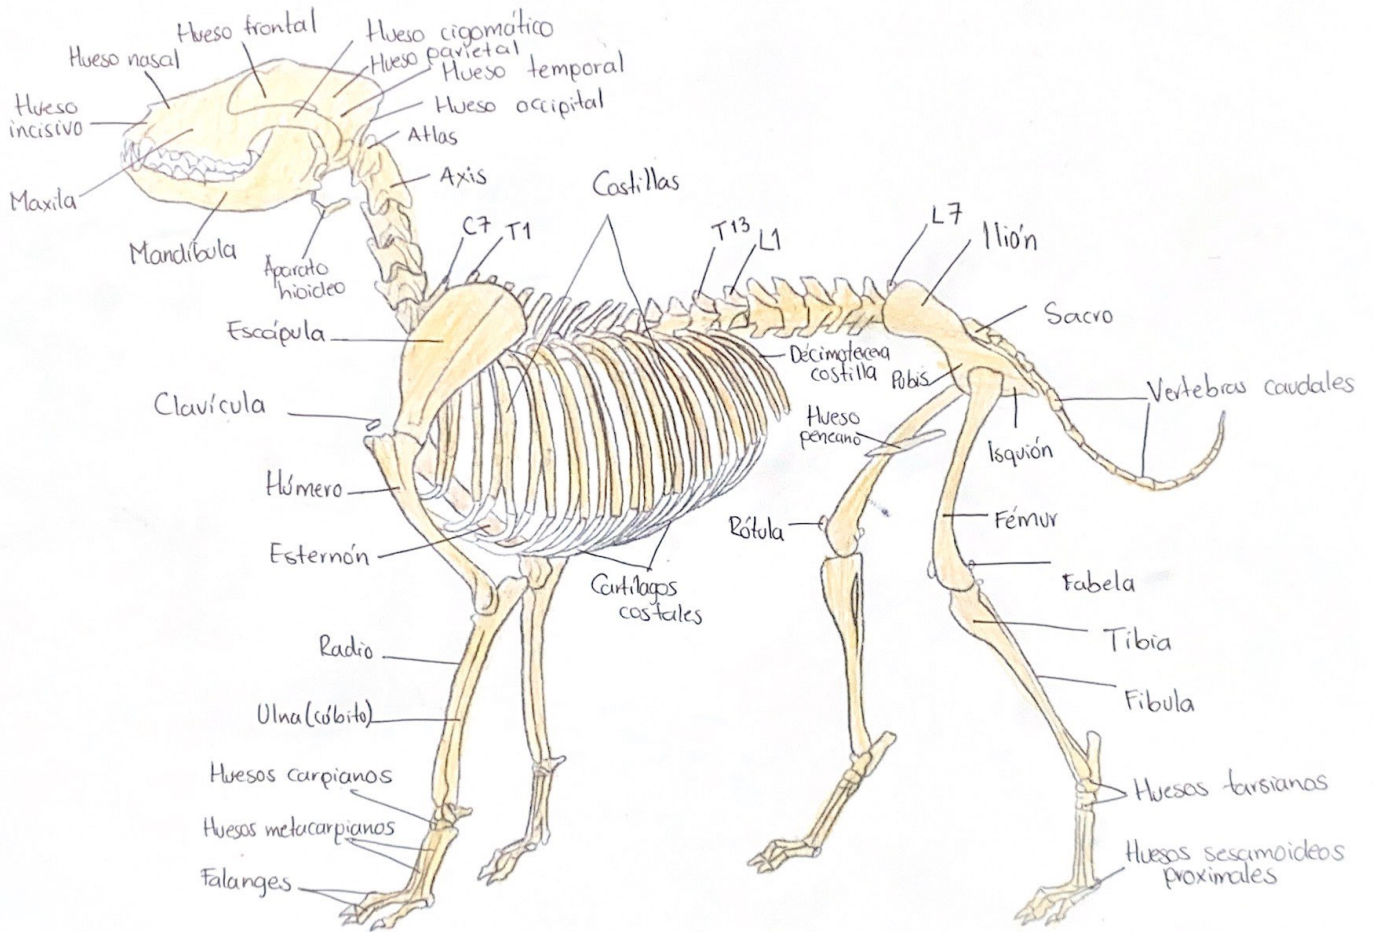 Hueso frontal
Hueso cigomático
Hueso nasal
Hueso parietal
Hueso temporal
Hueso
incisivo
Hueso occipital
Atlas
Axis
Maxila
Costillas
Mandíbula
Aparato
hioideo
C7
T1
T13
L1
L7
Ilión
Escápula
Sacro
Décimotercera
costilla
Pubis
Vertebras caudales
Clavícula
Hueso
peneano
Isquión
Húmero
Rótula
Fémur
Esternón
Cartílagos
costales
Fabela
Radio
Tibia
Ulna (cúbito)
Fibula
Huesos carpianos
Huesos tarsianos
Huesos metacarpianos
Huesos sesamoideos
proximales
Falanges